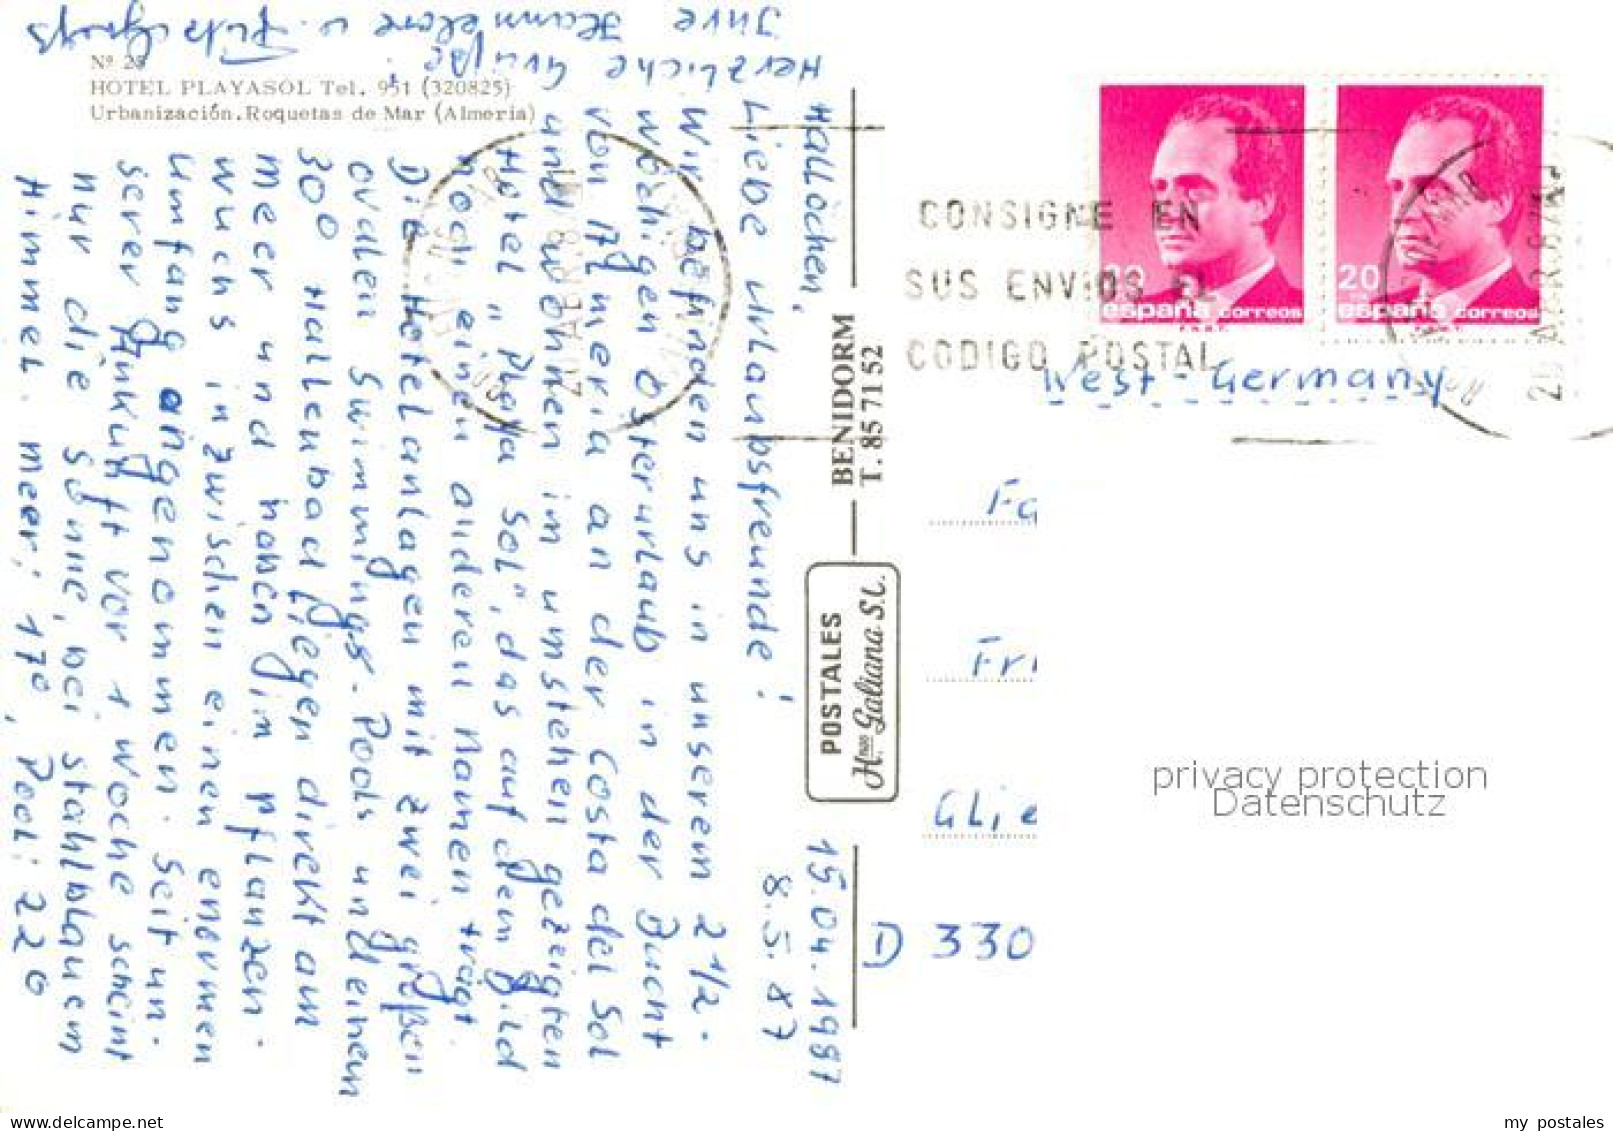 Nº 28
HOTEL PLAYASOL Tel. 951 (320825)
Urbanización. Roquetas de Mar (Almeria)
Hallöchen, 15.04.1987
8.5.87
Liebe Urlaubsfreunde!
Wir befinden uns in unserem 2 1/2-
wöchigen Osterurlaub in der Bucht
von Almeria an der Costa del Sol
und wohnen im umstehen gezeigten
Hotel "Playa Sol", das auf dem Bild
noch einen anderen Namen trägt.
Die Hotelanlagen mit zwei großen
ovalen Swimmings-Pools und einem
30° Hallenbad liegen direkt am
Meer und haben im Pflanzen-
wuchs inzwischen einen enormen
Umfang angenommen. Seit un-
serer Ankunft vor 1 Woche scheint
nur die Sonne, bei stahlblauem
Himmel. Meer: 17°, Pool: 22°
Herzliche Grüße
Ihre Hannelore u.
POSTALES
Hnos Galiana S.L.
BENIDORM
T. 85 71 52
CONSIGNE EN
SUS ENVIOS EL
CODIGO POSTAL
20
españa correos
F.N.M.T.
20
españa correos
F.N.M.T.
West-Germany
Fa
Fri
Glie
D 330
privacy protection
Datenschutz
my postales